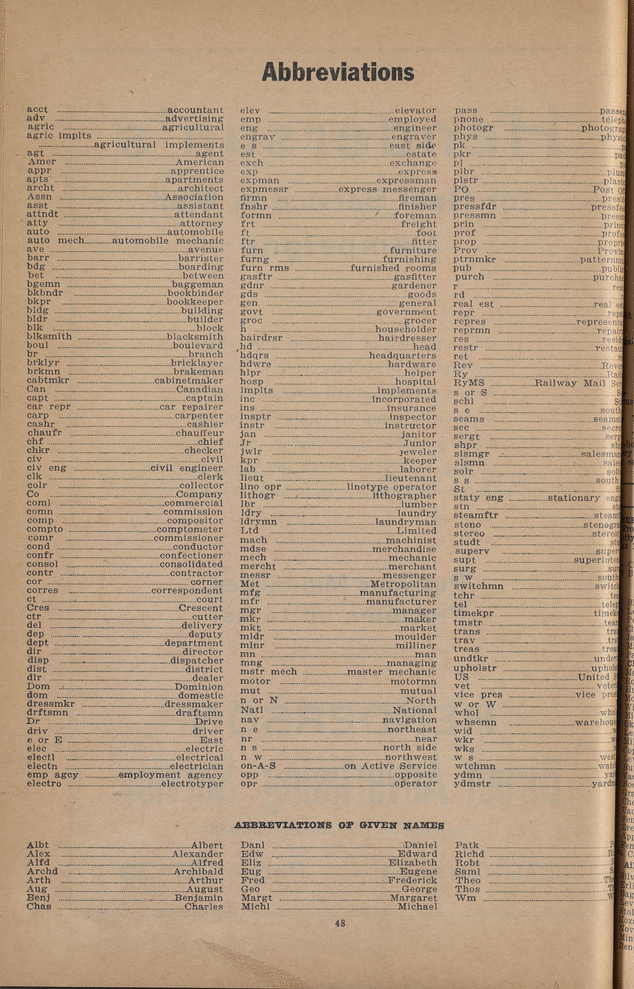 Abbreviations
acct accountant
adv advertising
agric agricultural
agric implts
agricultural implements
agt agent
Amer American
appr apprentice
apts apartments
archt architect
Assn Association
asst assistant
attndt attendant
atty attorney
auto automobile
auto mech automobile mechanic
ave avenue
barr barrister
bdg boarding
bet between
bgemn baggeman
bkbndr bookbinder
bkpr bookkeeper
bldg building
bldr builder
blk block
blksmith blacksmith
boul boulevard
br branch
brklyr bricklayer
brkmn brakeman
cabtmkr cabinetmaker
Can Canadian
capt captain
car repr car repairer
carp carpenter
cashr cashier
chaufr chauffeur
chf chief
chkr checker
civ civil
civ eng civil engineer
clk clerk
colr collector
Co Company
coml commercial
comn commission
comp compositor
compto comptometer
comr commissioner
cond conductor
confr confectioner
consol consolidated
contr contractor
cor corner
corres correspondent
ct court
Cres Crescent
ctr cutter
del delivery
dep deputy
dept department
dir director
disp dispatcher
dist district
dlr dealer
Dom Dominion
dom domestic
dressmkr dressmaker
drftsmn draftsmn
Dr Drive
driv driver
e or E East
elec electric
electl electrical
electn electrician
emp agcy employment agency
electro electrotyper
elev elevator
emp employed
eng engineer
engrav engraver
e s east side
est estate
exch exchange
exp express
expman expressman
expmessr express messenger
firmn fireman
fnshr finisher
formn foreman
frt freight
ft foot
ftr fitter
furn furniture
furng furnishing
furn rms furnished rooms
gasftr gasfitter
gdnr gardener
gds goods
gen general
govt government
groc grocer
h householder
hairdrsr hairdresser
hd head
hdqrs headquarters
hdwre hardware
hlpr helper
hosp hospital
implts implements
inc incorporated
ins insurance
insptr inspector
instr instructor
jan janitor
Jr Junior
jwlr jeweler
kpr keeper
lab laborer
lieut lieutenant
lino opr linotype operator
lithogr lithographer
lbr lumber
ldry laundry
ldrymn laundryman
Ltd Limited
mach machinist
mdse merchandise
mech mechanic
mercht merchant
messr messenger
Met Metropolitan
mfg manufacturing
mfr manufacturer
mgr manager
mkr maker
mkt market
mldr moulder
mlnr milliner
mn man
mng managing
mstr mech master mechanic
motor motormn
mut mutual
n or N North
Natl National
nav navigation
n e northeast
nr near
n s north side
n w northwest
on-A-S on Active Service
opp opposite
opr operator
pass passen
pnone teleph
photogr photograp
phys physi
pk
pkr
pl
plbr
plstr plast
PO Post Of
pres presi
pressfdr pressfe
pressmn press
prin prin
prof profe
prop propri
Prov Provin
ptrnmkr patternm
pub publi
purch purcha
r
rd
real est real e
repr
repres represent
reprmn repai
res resid
restr restau
ret
Rev Reve
Ry
RyMS Railway Mail Ser
s or S
schl
s e south
seams seams
sec secre
sergt serg
shpr
slsmgr salesman
slsmn sales
solr
s s south
St
staty eng stationary eng
stn
steamftr steam
steno stenogr
stereo stereo
studt
superv super
supt superinte
surg
s w south
switchmn switch
tchr
tel telep
timekpr timek
tmstr
trans
trav
treas
undtkr unde
upholstr uphol
US United S
vet veter
vice pres vice pres
w or W
whol whol
whsemn warehou
wid
wkr
wks
w s west
wtchmn watc
ydmn
ydmstr yards
ABBREVIATIONS OF GIVEN NAMES
Albt Albert
Alex Alexander
Alfd Alfred
Archd Archibald
Arth Arthur
Aug August
Benj Benjamin
Chas Charles
Danl Daniel
Edw Edward
Eliz Elizabeth
Eug Eugene
Fred Frederick
Geo George
Margt Margaret
Michl Michael
Patk
Richd
Robt
Saml
Theo
Thos
Wm
48